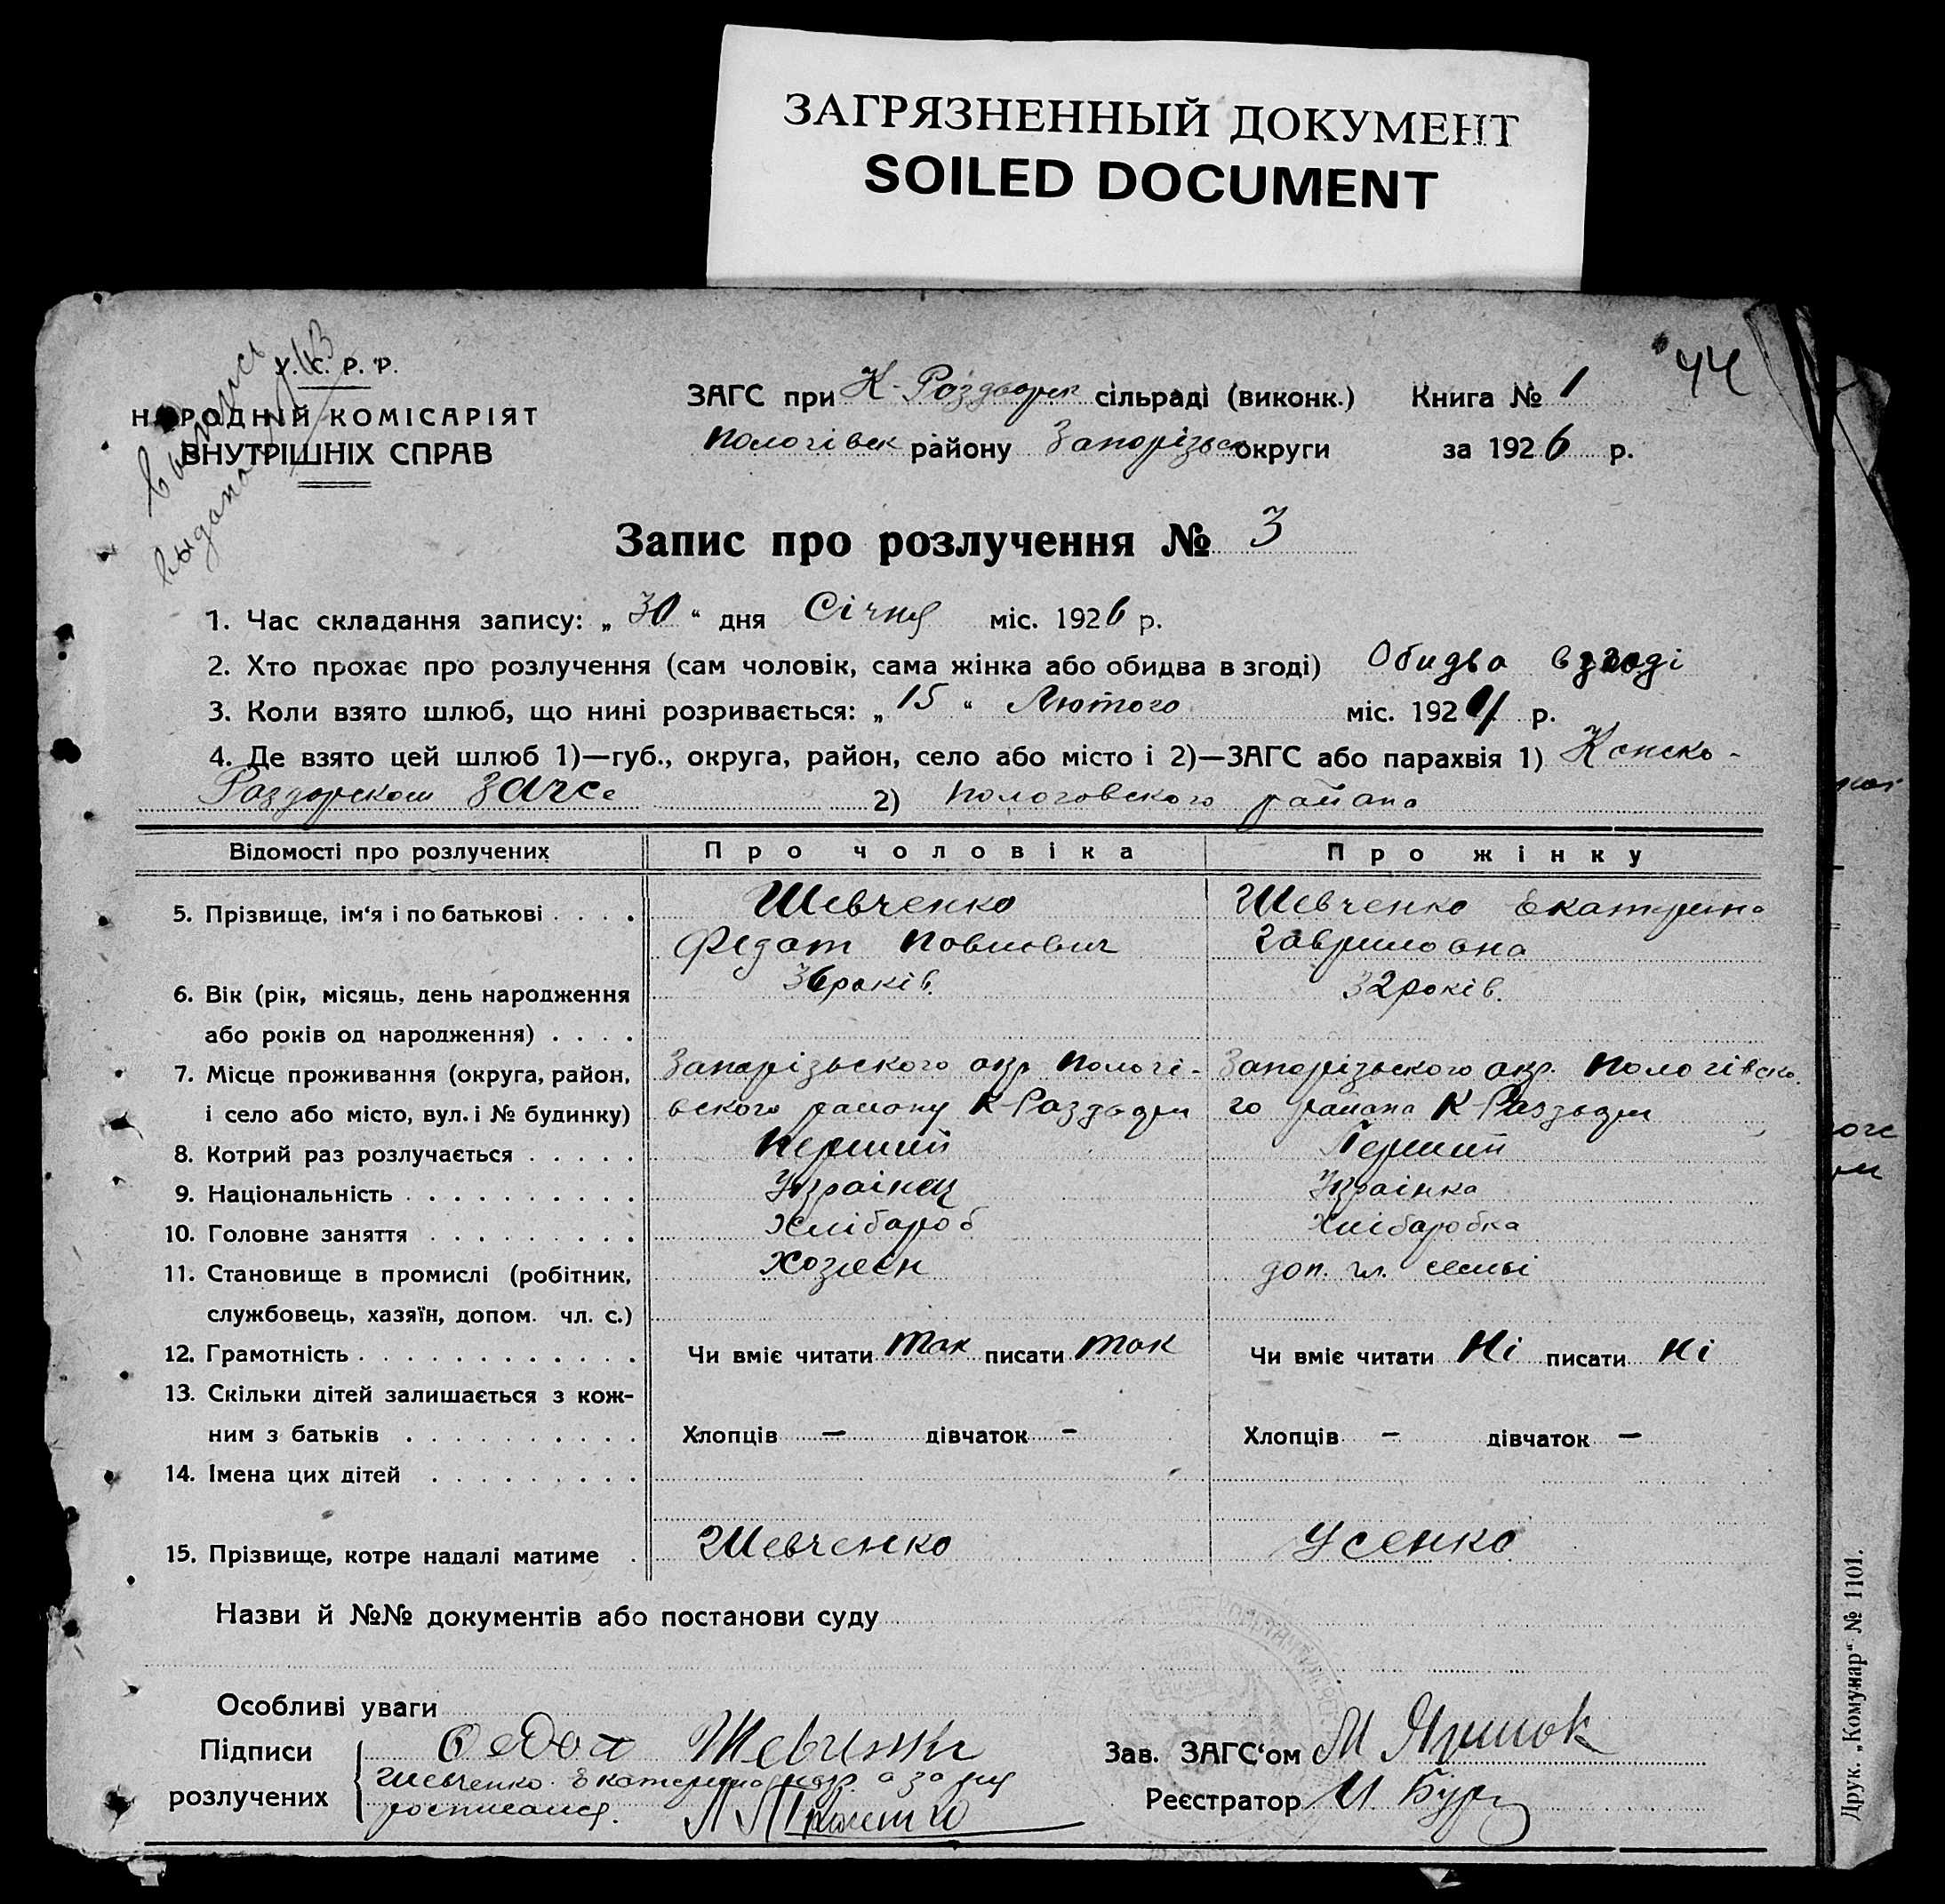 ЗАГРЯЗНЕННЫЙ ДОКУМЕНТ
SOILED DOCUMENT
44
У. С. Р. Р.
НАРОДНІЙ КОМІСАРІЯТ
ВНУТРІШНІХ СПРАВ
ЗАГС при К-Роздорск сільраді (виконк.) Книга № 1
Пологівськ району Запорізьк округи за 1926 р.
Запис про розлучення № 3
1. Час складання запису: „ 30 “ дня Січня міс. 1926 р.
2. Хто прохає про розлучення (сам чоловік, сама жінка або обидва в згоді) Обидва взгоді
3. Коли взято шлюб, що нині розривається: „ 15 “ Лютого міс. 192 р.
4. Де взято цей шлюб 1)—губ., округа, район, село або місто і 2)—ЗАГС або парахвія 1) Конско-
Роздорском Загсе 2) Пологовского района
Відомості про розлучених Про чоловіка Про жінку
5. Прізвище, ім‘я і по батькові . . . . Шевченко Шевченко Екатерина
Федот Павлович Гавриловна
6. Вік (рік, місяць, день народження 36 років. 32 років.
або років од народження) . . . .
7. Місце проживання (округа, район, Запорізького окр Пологі- Запорізького окр. Пологівско
і село або місто, вул. і № будинку) вского району К-Роздори го района К-Раздори
8. Котрий раз розлучається . . . . . Перший Перший
9. Національність . . . . . . . . . . Українец Українка
10. Головне заняття . . . . . . . . . Хлібароб Хлібаробка
11. Становище в промислі (робітник, Хозяен доп. чл. семьі
службовець, хазяїн, допом. чл. с.)
12. Грамотність . . . . . . . . . . . . Чи вміє читати так писати так Чи вміє читати Ні писати Ні
13. Скільки дітей залишається з кож-
ним з батьків . . . . . . . . . . Хлопців — дівчаток — Хлопців — дівчаток —
14. Імена цих дітей . . . . . . . . .
15. Прізвище, котре надалі матиме . Шевченко Усенко
Назви й №№ документів або постанови суду
Особливі уваги
Підписи Федот Шевченко Зав. ЗАГС‘ом М Ярмок
розлучених Шевченко Екатерина
росписался. Реєстратор И.
Друк. „Комунар“ № 1101.